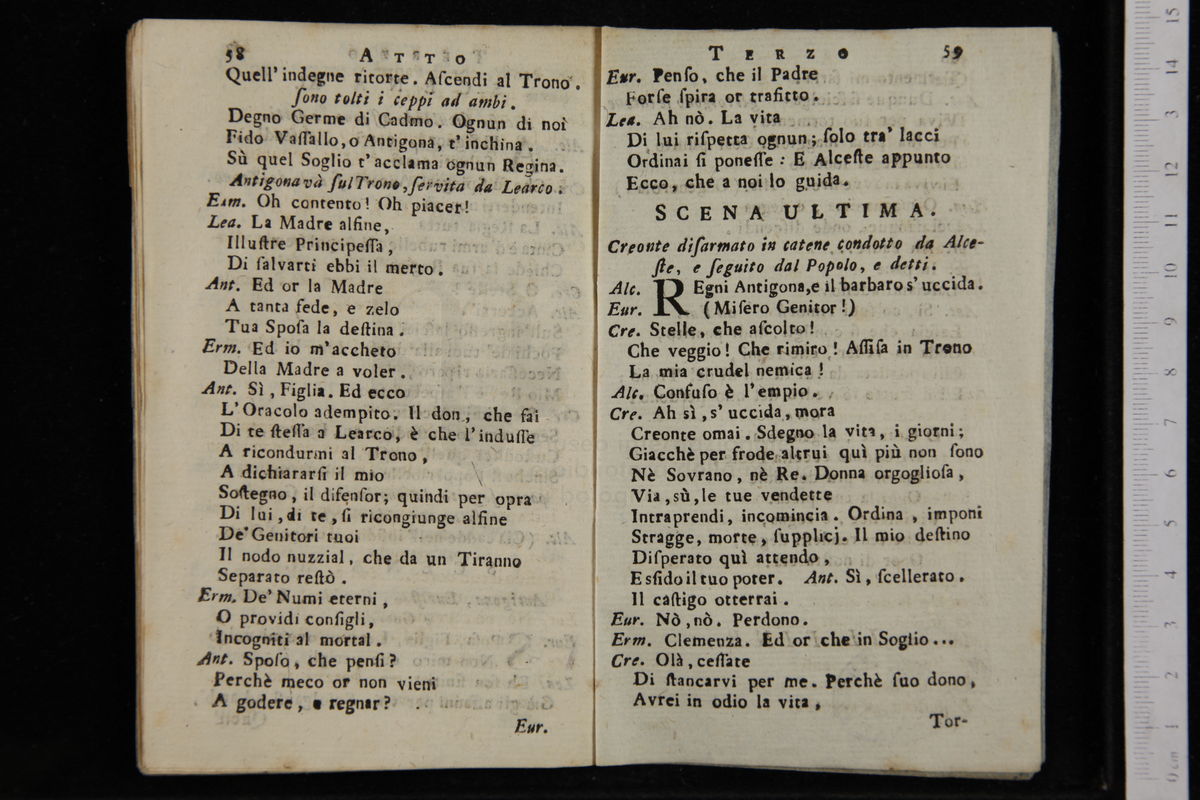 58 ATTO
Quell' indegne ritorte. Aſcendi al Trono.
ſono tolti i ceppi ad ambi.
Degno Germe di Cadmo. Ognun di noi
Fido Vaſſallo, o Antigona, t' inchina.
Sù quel Soglio t' acclama ognun Regina.
Antigona và ſul Trono, ſervita da Learco.
Eum. Oh contento! Oh piacer!
Lea. La Madre alfine,
Illuſtre Principeſſa,
Di ſalvarti ebbi il merto.
Ant. Ed or la Madre
A tanta fede, e zelo
Tua Spoſa la deſtina.
Erm. Ed io m' accheto
Della Madre a voler.
Ant. Sì, Figlia. Ed ecco
L' Oracolo adempito. Il don, che fai
Di te ſteſſa a Learco, è che l' induſſe
A ricondurmi al Trono,
A dichiararſi il mio
Soſtegno, il difenſor; quindi per opra
Di lui, di te, ſi ricongiunge alfine
De' Genitori tuoi
Il nodo nuzzial, che da un Tiranno
Separato reſtò.
Erm. De' Numi eterni,
O providi conſigli,
Incogniti al mortal.
Ant. Spoſo, che penſi?
Perchè meco or non vieni
A godere, e regnar?
Eur.
TERZO 59
Eur. Penſo, che il Padre
Forſe ſpira or trafitto.
Lea. Ah nò. La vita
Di lui riſpetta ognun; ſolo tra' lacci
Ordinai ſi poneſſe: E Alceſte appunto
Ecco, che a noi lo guida.
SCENA ULTIMA.
Creonte diſarmato in catene condotto da Alce-
ſte, e ſeguito dal Popolo, e detti.
Alc. REgni Antigona, e il barbaro s' uccida.
Eur. (Miſero Genitor!)
Cre. Stelle, che aſcolto!
Che veggio! Che rimiro! Aſſiſa in Trono
La mia crudel nemica!
Alc. Confuſo è l' empio.
Cre. Ah sì, s' uccida, mora
Creonte omai. Sdegno la vita, i giorni;
Giacchè per frode altrui quì più non ſono
Nè Sovrano, nè Re. Donna orgoglioſa,
Via, sù, le tue vendette
Intraprendi, incomincia. Ordina, imponi
Stragge, morte, ſupplicj. Il mio deſtino
Diſperato quì attendo,
E sfido il tuo poter. Ant. Sì, ſcellerato.
Il caſtigo otterrai.
Eur. Nò, nò. Perdono.
Erm. Clemenza. Ed or che in Soglio...
Cre. Olà, ceſſate
Di ſtancarvi per me. Perchè ſuo dono,
Avrei in odio la vita,
Tor-
15
14
13
12
11
10
9
8
7
6
5
4
3
2
1
0 cm